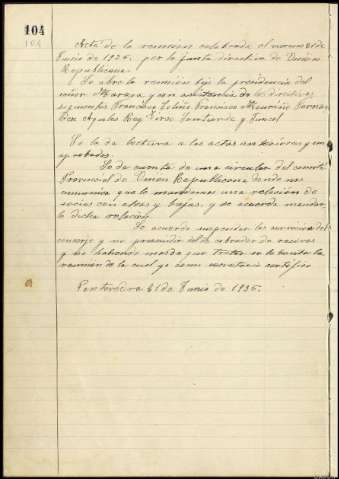 104
104
Acta de la reunion celebrada el
Junio de 1936, por la junta directiva de Union
Republicana.
Se abre la reunion bajo la presidencia del
señor y con asistencia de los directivos
siguientes Francisco
Rey
Se da lectura a las actas anteriores y son
aprobadas.
Se da cuenta de una circular del comité
Provincial de Union Republicana donde nos
comunica que le mandemos una relación de
socios con altas y bajas, y se acuerda mandar
la dicha relación.
Se acuerda suspender los servicios del
conserje y no prescindir del de cobrador de recibos
y no habiendo mas de que tratar se levanta la
reunion de la cual yo como secretario certifico
Pontevedra Junio de 1936.